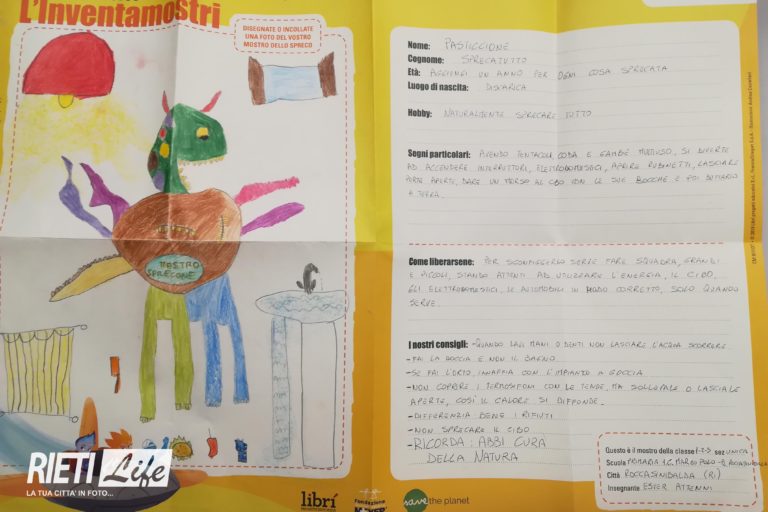 L'Inventamostri
DISEGNATE O INCOLLATE
UNA FOTO DEL VOSTRO
MOSTRO DELLO SPRECO
MOSTRO
SPRECONE
Nome: PASTICCIONE
Cognome: SPRECATUTTO
Età: AGGIUNGI UN ANNO PER OGNI COSA SPRECATA
Luogo di nascita: DISCARICA
Hobby: NATURALMENTE SPRECARE TUTTO
Segni particolari: AVENDO TENTACOLI, CODA E GAMBE MULTIUSO, SI DIVERTE
AD ACCENDERE INTERRUTTORI, ELETTRODOMESTICI, APRIRE RUBINETTI, LASCIARE
PORTE APERTE, DARE UN MORSO AL CIBO CON LE SUE BOCCHE E POI BUTTARLO
A TERRA.
Come liberarsene: PER SCONFIGGERLO SERVE FARE SQUADRA, GRANDI
E PICCOLI, STANDO ATTENTI AD UTILIZZARE L'ENERGIA, IL CIBO,
GLI ELETTRODOMESTICI, LE AUTOMOBILI IN MODO CORRETTO, SOLO QUANDO
SERVE.
I nostri consigli: -QUANDO LAVI MANI O DENTI NON LASCIARE L'ACQUA SCORRERE
-FAI LA DOCCIA E NON IL BAGNO
-SE FAI L'ORTO, INNAFFIA CON L'IMPIANTO A GOCCIA
-NON COPRIRE I TERMOSIFONI CON LE TENDE, MA SOLLEVALE O LASCIALE
APERTE, COSÌ IL CALORE SI DIFFONDE.
-DIFFERENZIA BENE I RIFIUTI
-NON SPRECARE IL CIBO
-RICORDA: ABBI CURA
DELLA NATURA
Questo è il mostro della classe 1-2-3 sez UNICA
Scuola PRIMARIA I.C. MARCO POLO
Città ROCCASINIBALDA (RI)
Insegnante ESTER ATTENNI
RIETI Life
LA TUA CITTA' IN FOTO...
librí
Fondazione
save the planet